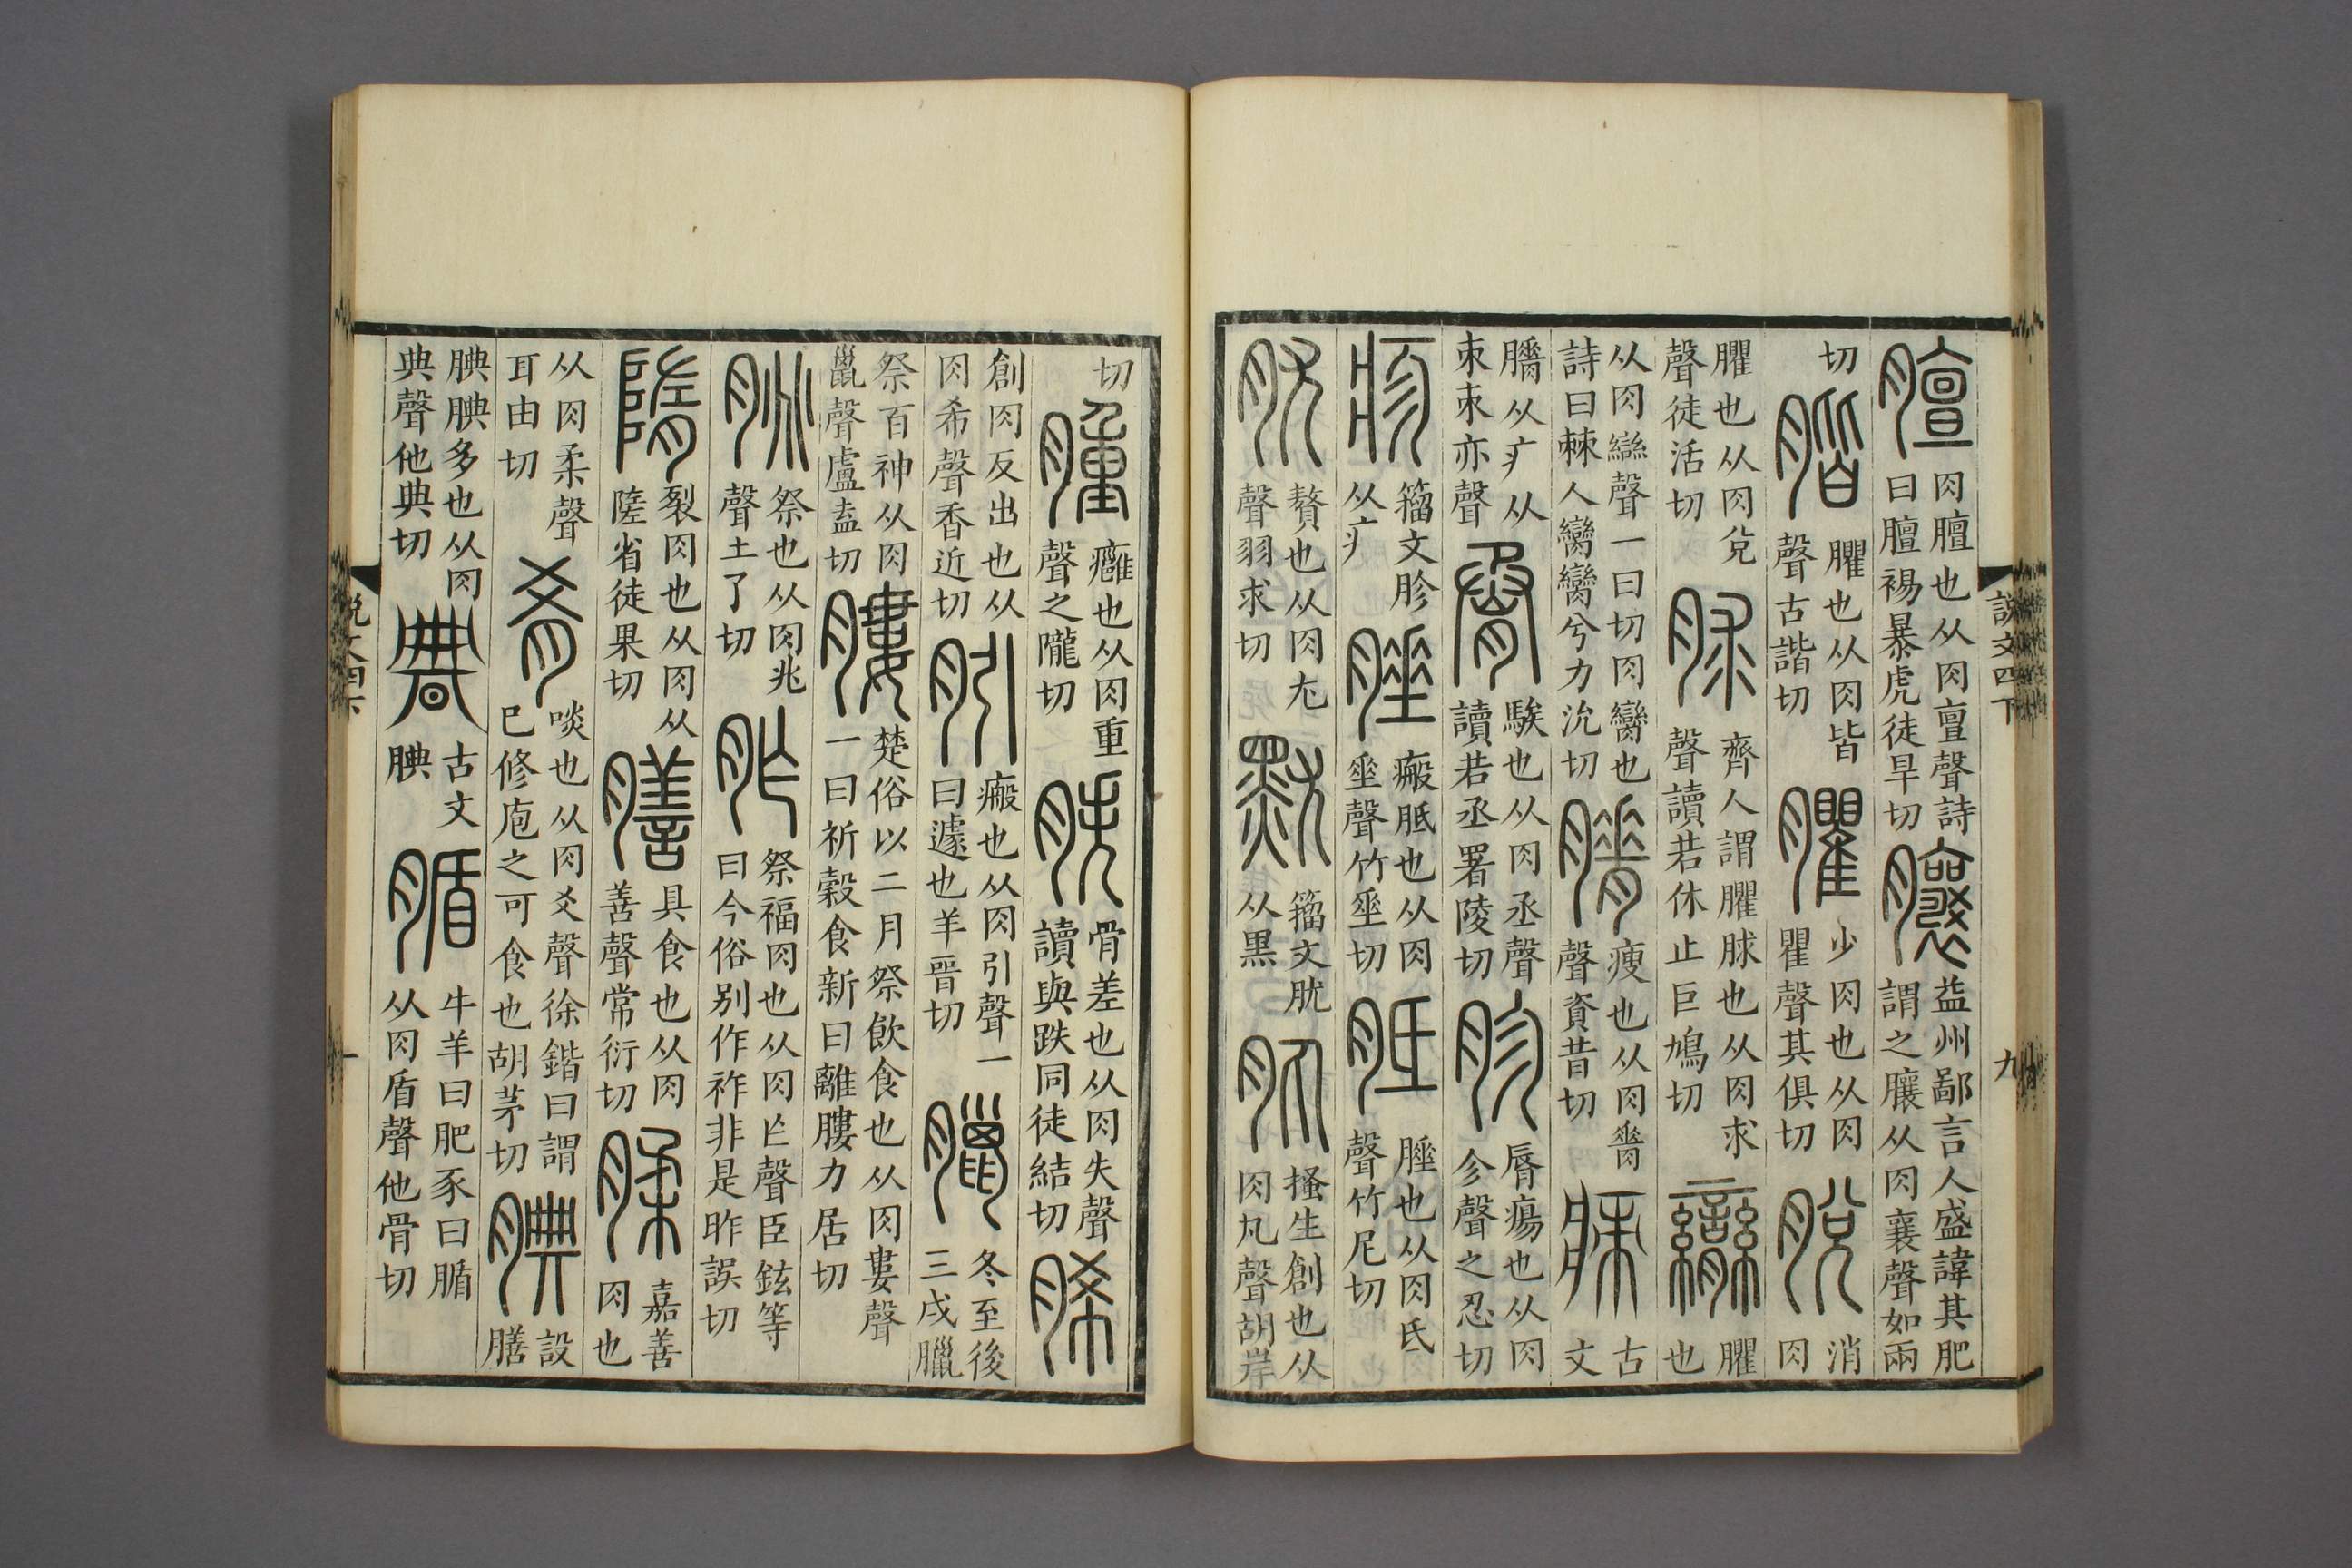 膻肉膻也从肉亶聲詩曰膻裼暴虎徒旱切䑋益州鄙言人盛諱其肥謂之䑋从肉襄聲如兩
切䐡臞也从肉皆聲古諧切臞少肉也从肉瞿聲其俱切脫消肉
臞也从肉兌聲徒活切脙齊人謂臞脙也从肉求聲讀若休止巨鳩切臠臞也
从肉䜌聲一曰切肉臠也詩曰棘人臠臠兮力沇切膌瘦也从肉脊聲資昔切𤶊古文
膌从疒从朿朿亦聲𦙫騃也从肉丞聲讀若丞署陵切胗脣瘍也从肉㐱聲之忍切
疹籒文胗从疒腄瘢胝也从肉垂聲竹垂切胝腄也从肉氐聲竹尼切
肬贅也从肉尤聲羽求切䵢籒文肬从黑肒搔生創也从肉丸聲胡岸
說文四下
九
切腫癰也从肉重聲之隴切胅骨差也从肉失聲讀與跌同徒結切脪
創肉反出也从肉希聲香近切瘢也从肉引聲一曰遽也羊晋切臘冬至後三戌臘
祭百神从肉巤聲盧盍切膢楚俗以二月祭飲食也从肉婁聲一曰祈穀食新曰離膢力居切
朓祭也从肉兆聲土了切胙祭福肉也从肉乍聲臣鉉等曰今俗别作祚非是昨誤切
隋裂肉也从肉从隓省徒果切膳具食也从肉善聲常衍切腬嘉善肉也
从肉柔聲耳由切肴啖也从肉爻聲徐鍇曰謂已修庖之可食也胡茅切腆設膳
腆腆多也从肉典聲他典切古文腆腯牛羊曰肥豕曰腯从肉盾聲他骨切